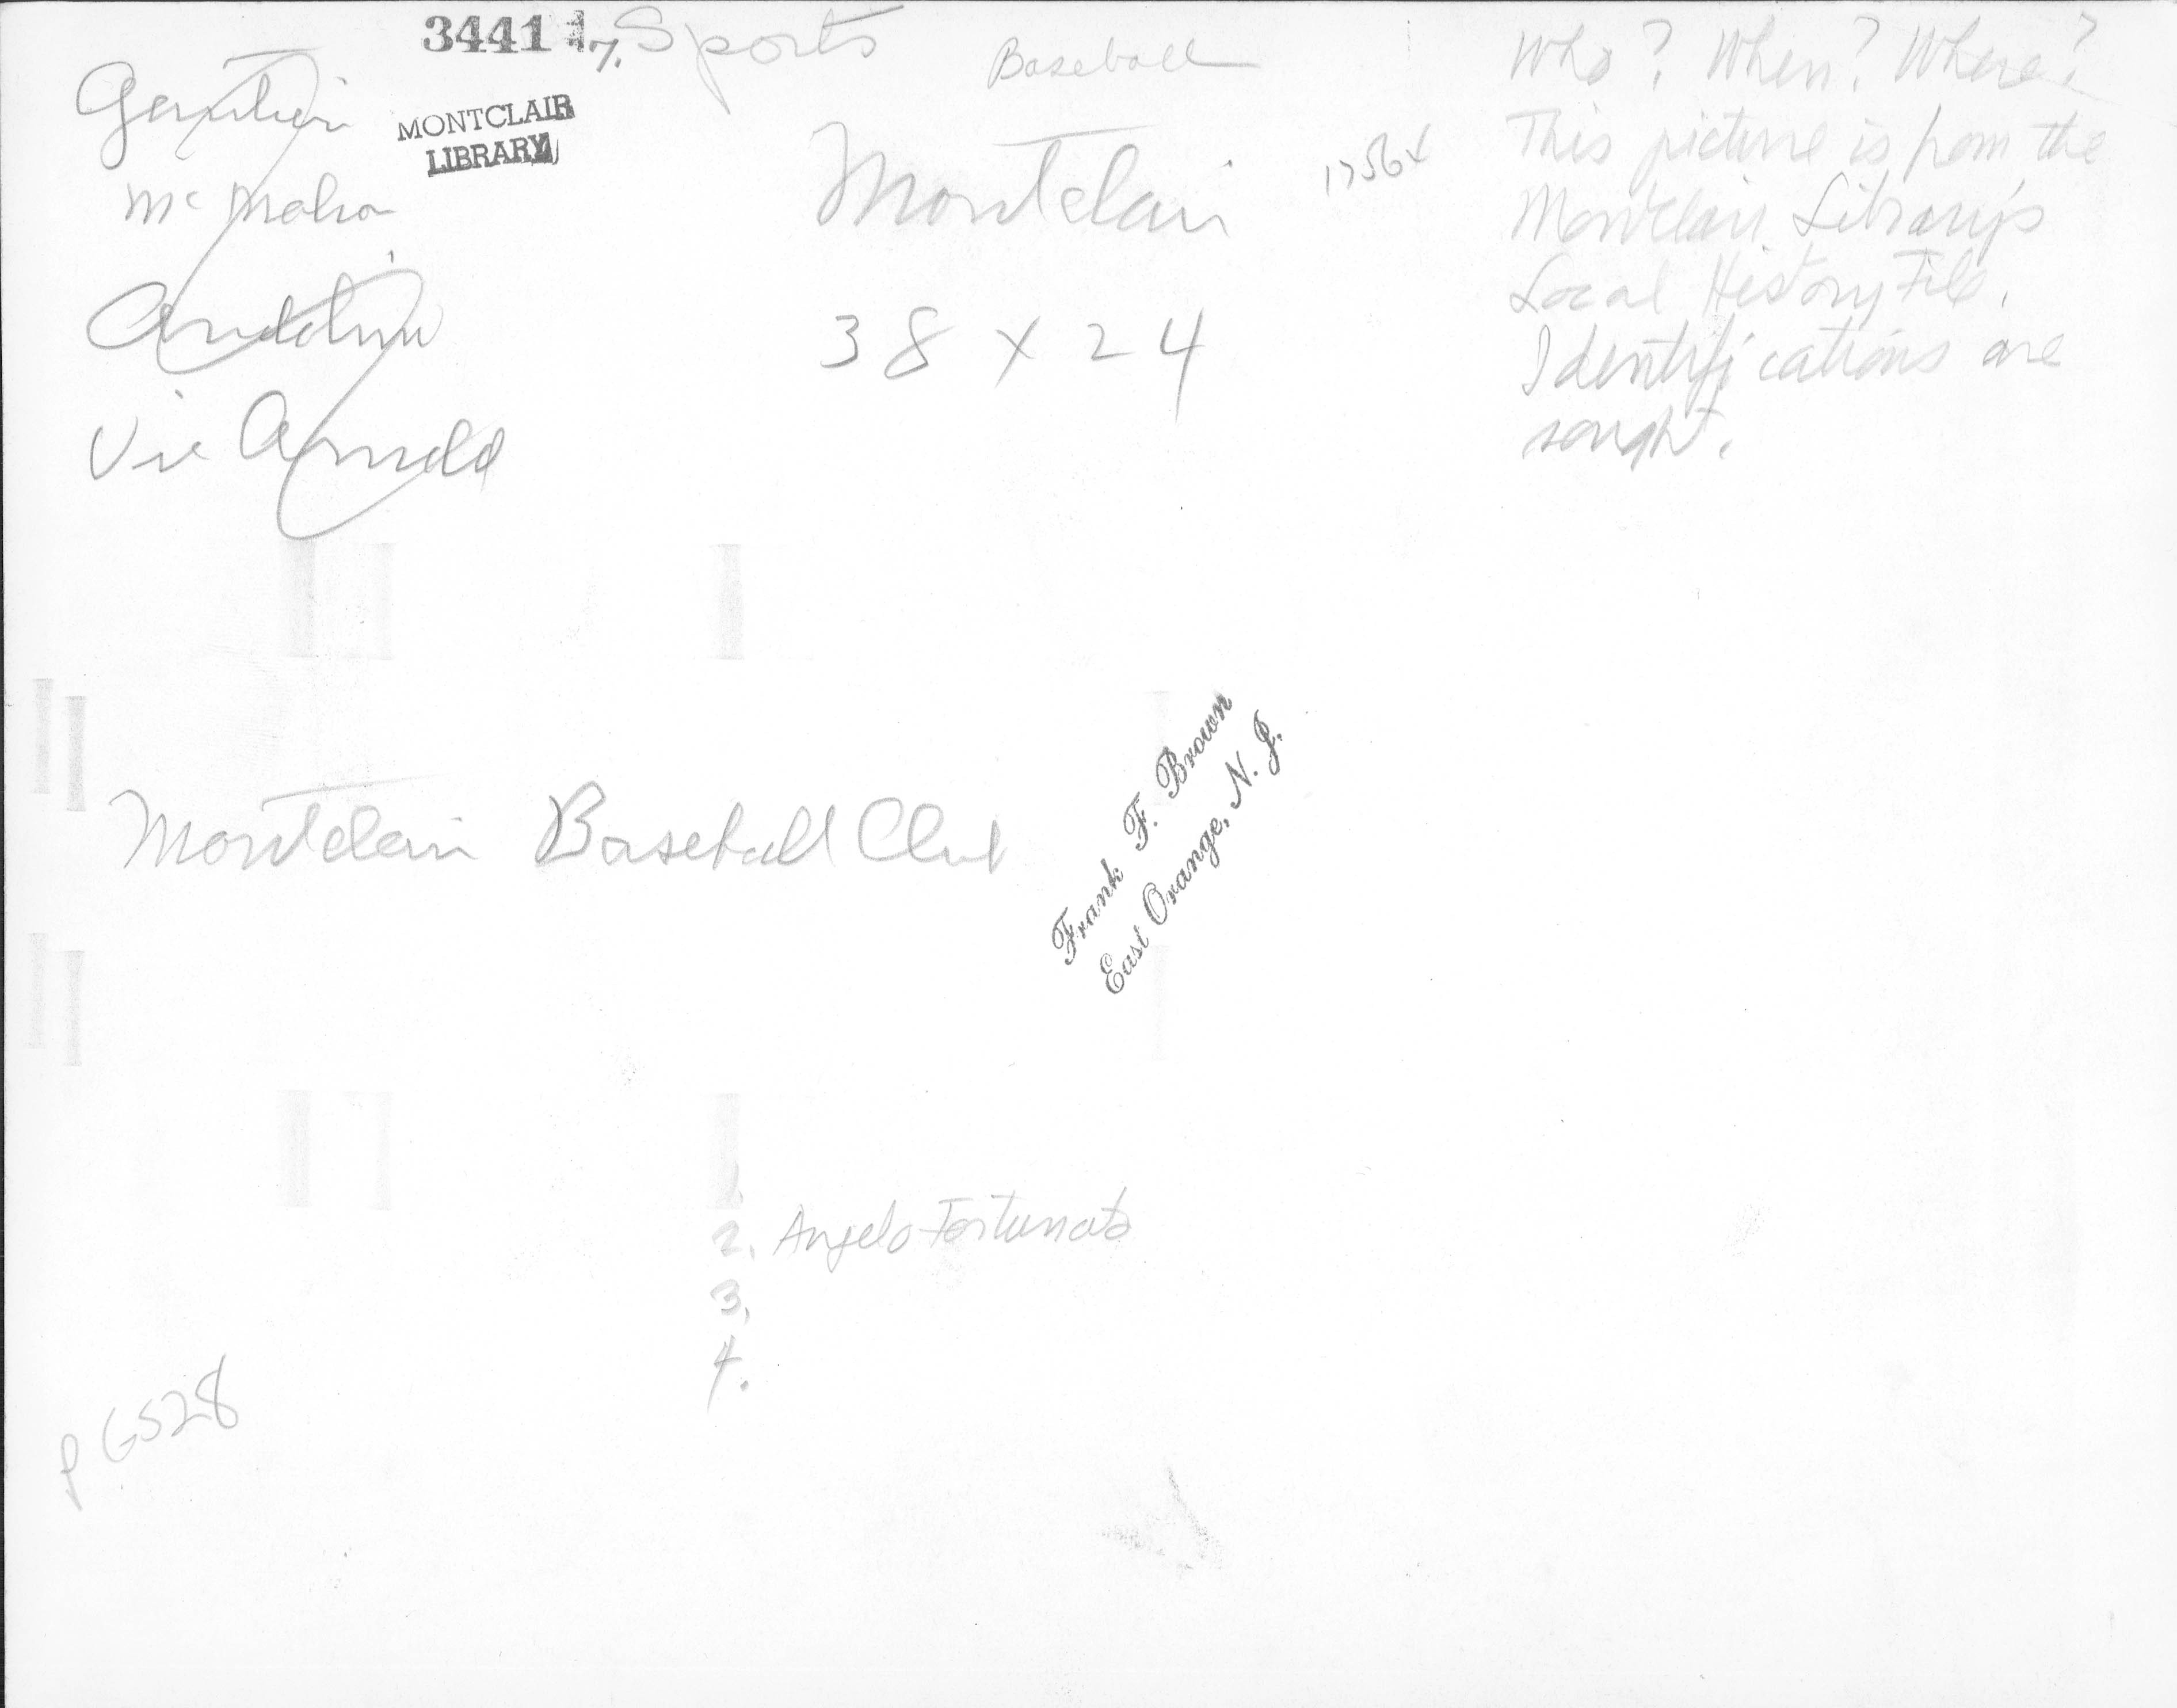 3441
7. Sports
Baseball
MONTCLAIR
LIBRARY
Mc Mahon
Vic Arnold
Montclair
38 x 24
Who? When? Where?
This picture is from the
Montclair Library's
Local History File.
Identifications are
sought.
Montclair Baseball Club
Frank F. Brown
East Orange, N. J.
2. Angelo Fortunato
3.
4.